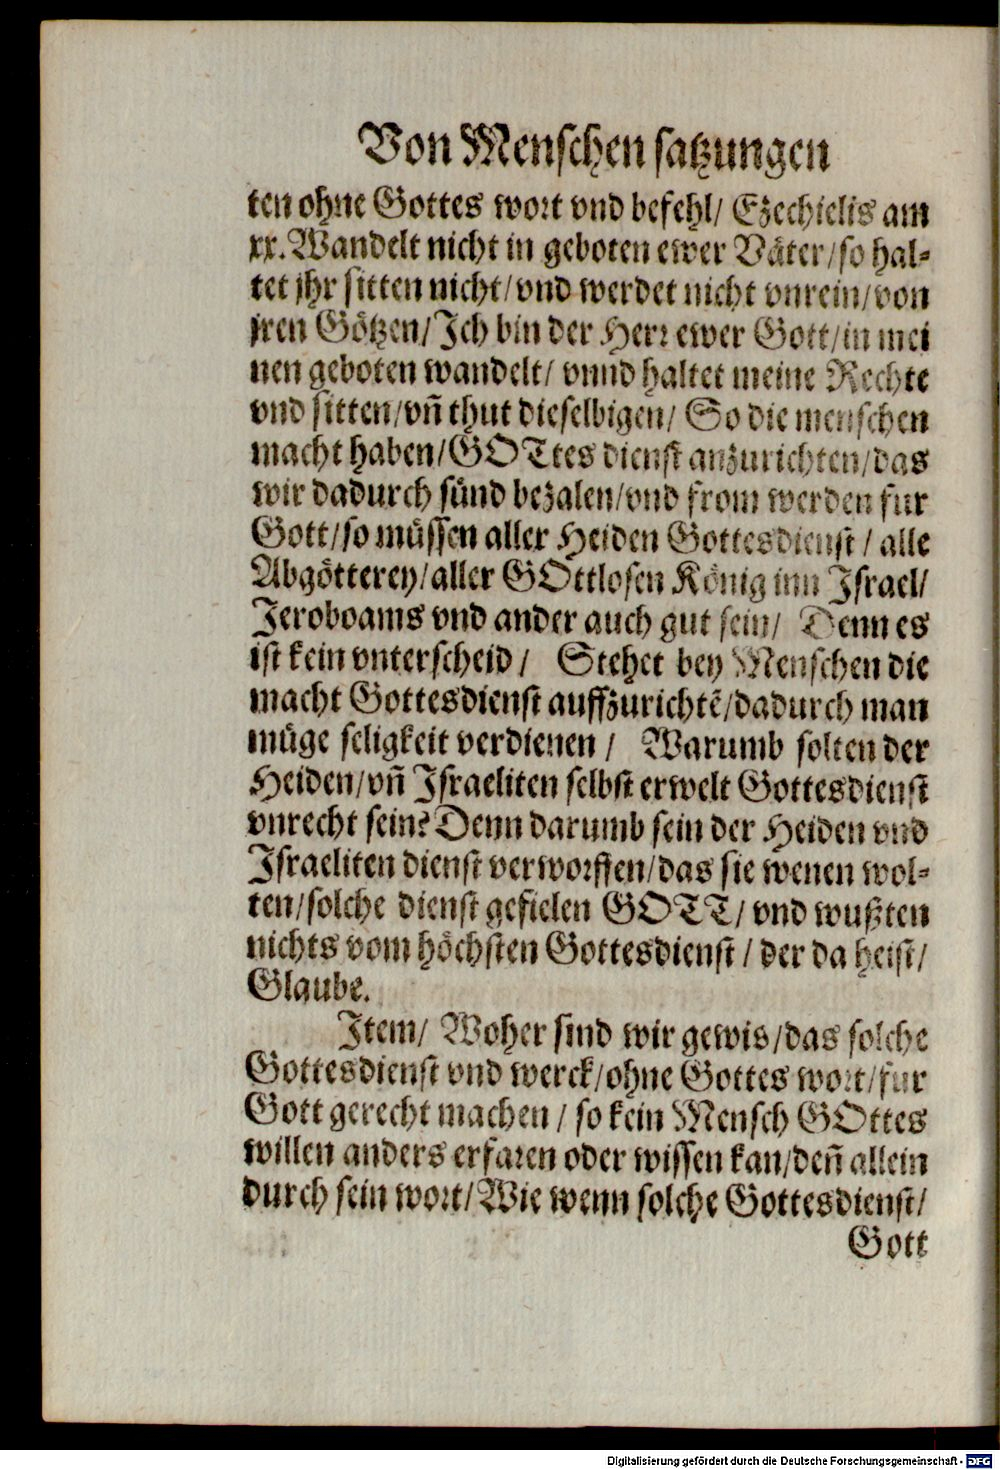 Von Menschen satzungen
ten ohne Gottes wort vnd befehl/ Ezechielis am
xx. Wandelt nicht in geboten ewer Väter/so hal⸗
tet jhr sitten nicht/vnd werdet nicht vnrein/von
jren Götzen/Ich bin der Herr ewer Gott/in mei
nen geboten wandelt/ vnnd haltet meine Rechte
vnd sitten/vñ thut dieselbigen/ So die menschen
macht haben/GOTtes dienst anzurichten/das
wir dadurch sünd bezalen/vnd from werden fur
Gott/so müssen aller Heiden Gottesdienst / alle
Abgötterey/aller GOttlosen König inn Israel/
Jeroboams vnd ander auch gut sein/ Denn es
ist kein vnterscheid / Stehet bey Menschen die
macht Gottesdienst auffzurichtẽ/dadurch man
müge seligkeit verdienen / Warumb solten der
Heiden/vñ Israeliten selbst erwelt Gottesdienst
vnrecht sein? Denn darumb sein der Heiden vnd
Israeliten dienst verworffen/das sie wenen wol⸗
ten/solche dienst gefielen GOTT/ vnd wußten
nichts vom höchsten Gottesdienst / der da heist/
Glaube.
Item/ Woher sind wir gewis/das solche
Gottesdienst vnd werck/ohne Gottes wort/fur
Gott gerecht machen / so kein Mensch GOttes
willen anders erfaren oder wissen kan/deñ allein
durch sein wort/Wie wenn solche Gottesdienst/
Gott
Digitalisierung gefördert durch die Deutsche Forschungsgemeinschaft - DFG